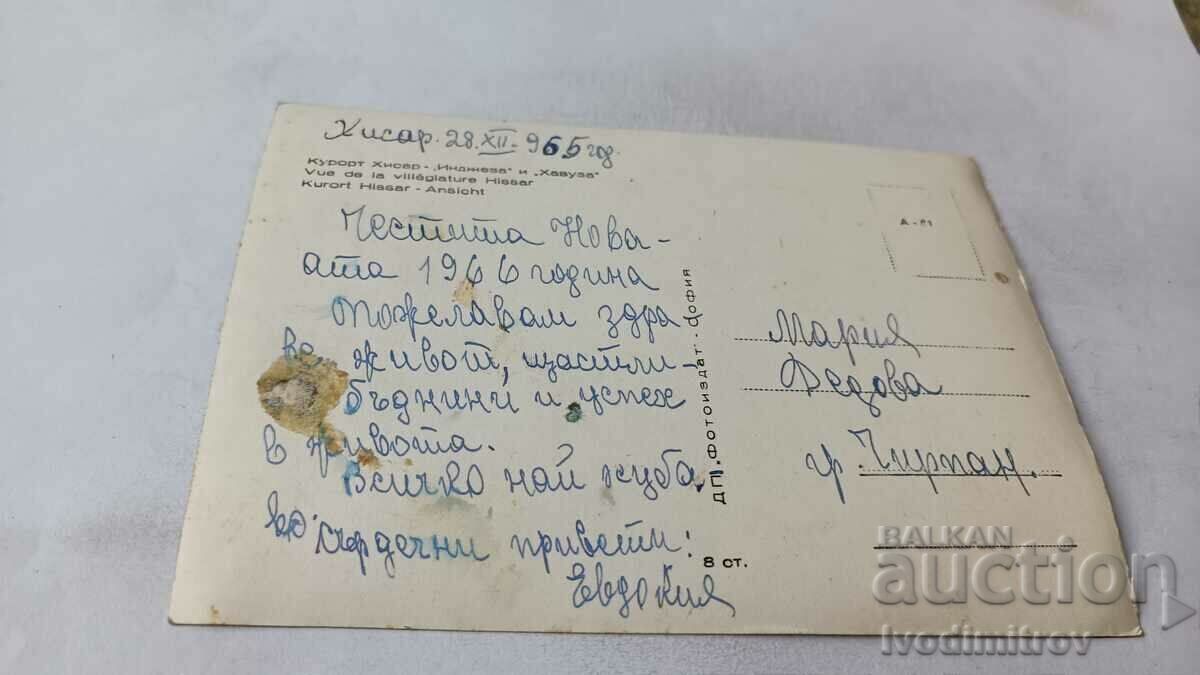 Хисар. 28.XII-965 год.
Курорт Хисар - „Инджеза" и „Хавуза"
Vue de la villégiature Hissar
Kurort Hissar - Ansicht
Честита Нова-
ата 1966 година
Пожелавам здра
живот, щастли-
бъднини и успех
в живота.
Всичко най хуба
во. Сърдечни привети:
Евдокия
ДП. Фотоиздат - София
8 ст.
А-61
Мария
Дедова
гр. Чирпан.
BALKAN
auction
Ivodimitrov